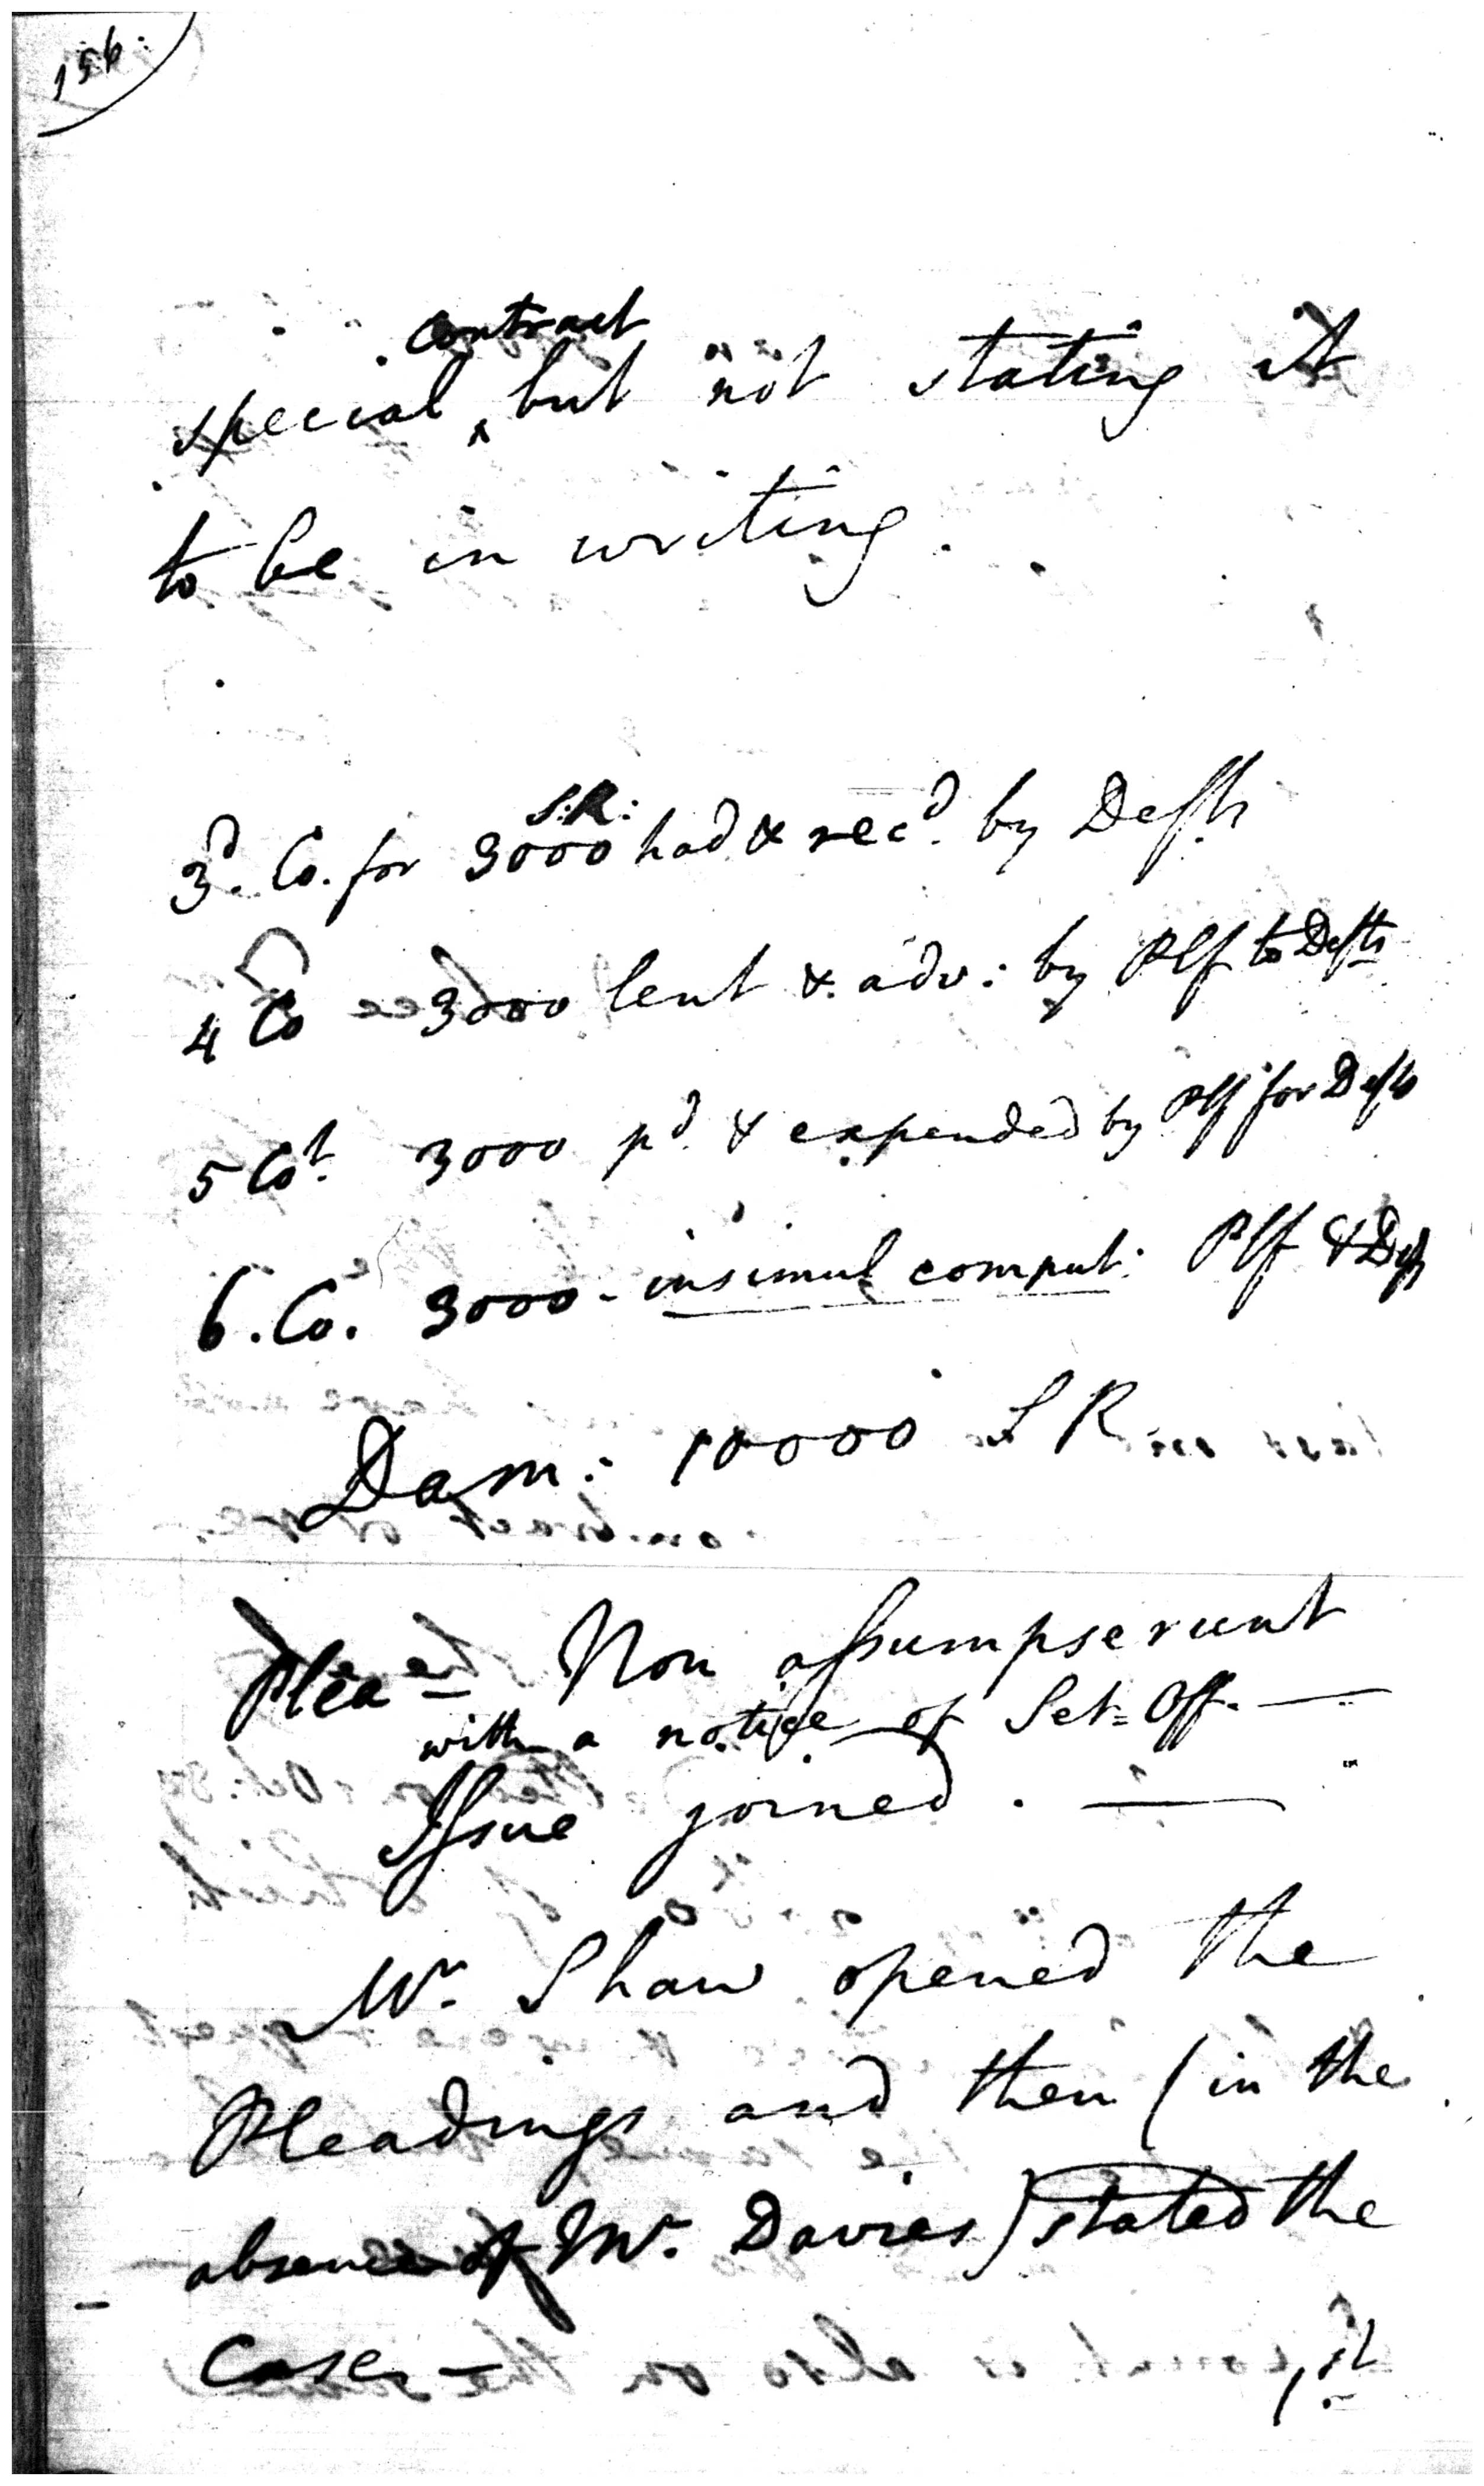 156.
contract
special ‸ but not stating it
to be in writing.
S:R:
3d. Co. for 3000 had & recd. by Defts
4 Co 3000 lent & adv: by Plf to Defts
5 Cot. 3000 pd. & expended by Plf for Defts
6. Co. 3000 - insimul comput: Plf & Defts
Dam: 10000 S R
Plea - Non assumpserunt
with a notice of Set=Off. —
Issue joined. —
Mr. Shaw opened the
Pleadings and then (in the
absence of Mr. Davies) stated the
Case, —
it